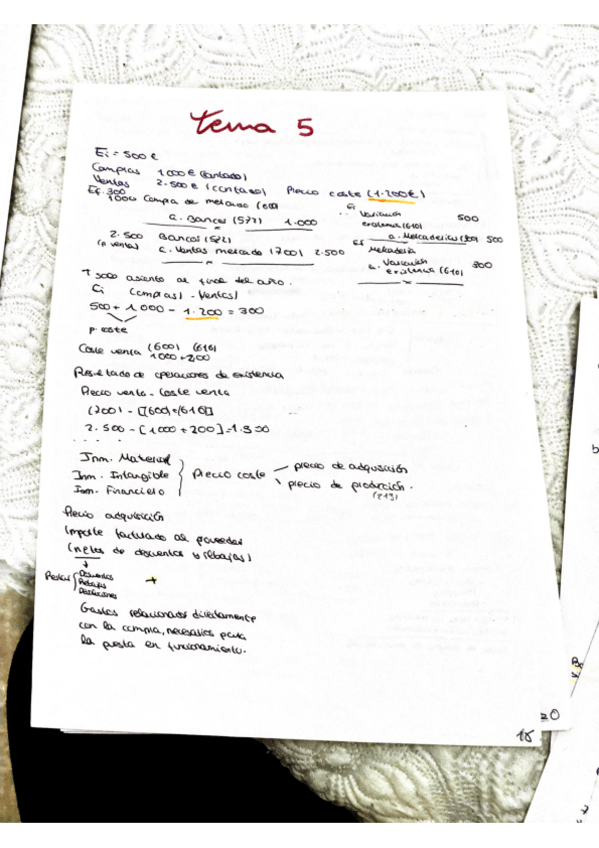 tema 5
Ei = 500 €
Compras 1000 € (contado)
Ventas 2.500 € (contado) Precio coste (1.200€)
Ef. 300
1000 Compra de mercad (600)
a. Bancos (572) 1.000
2.500 Bancos (572)
(p venta) a. Ventas mercad (700) 2.500
Ei
Variación 500
existencia (610)
a. Mercaderías (300) 500
Ef Mercadería
a. Variación 300
existencia (610)
asiento al final del año.
Ei (compras) - Ventas)
500 + 1.000 - 1.200 = 300
p. coste
Coste venta (600) (610)
1000 + 200
Resultado de operaciones de existencia
Precio venta - Coste venta
(700) - [(600)+(610)]
2.500 - [1000 + 200] = 1.300
Inm. Material
Inm. Intangible
Inm. Financiero
Precio coste
precio de adquisición
precio de producción.
(213)
Precio adquisición
Importe facturado al proveedor
(netos de descuentos y rebajas)
Restar
Descuentos
Rebajas
Devoluciones
+
Gastos relacionados directamente
con la compra, necesarios para
la puesta en funcionamiento.
20
18